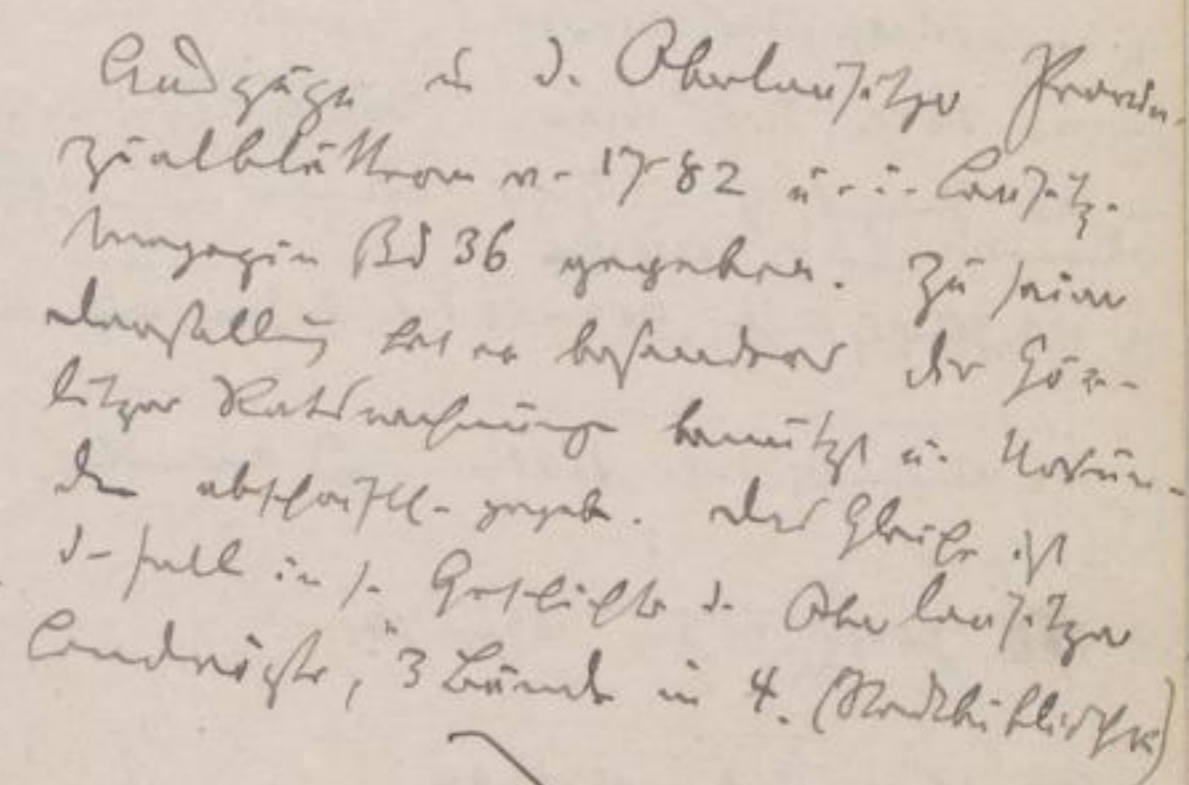 Auszüge in d. Oberlausitzer Provin-
zialblättern v. 1782 u. i. Lausitz.
Magazin Bd 36 gegeben. Zu seiner
Darstellung hat er besonders die Gör-
litzer Ratsrechnungen benützt u. Urkun-
den abschriftl. gegeb. Das Gleiche ist
d. Fall in s. Geschichte d. Oberlausitzer
Landvögte, 3 Bände in 4. (Stadtbibliothek)